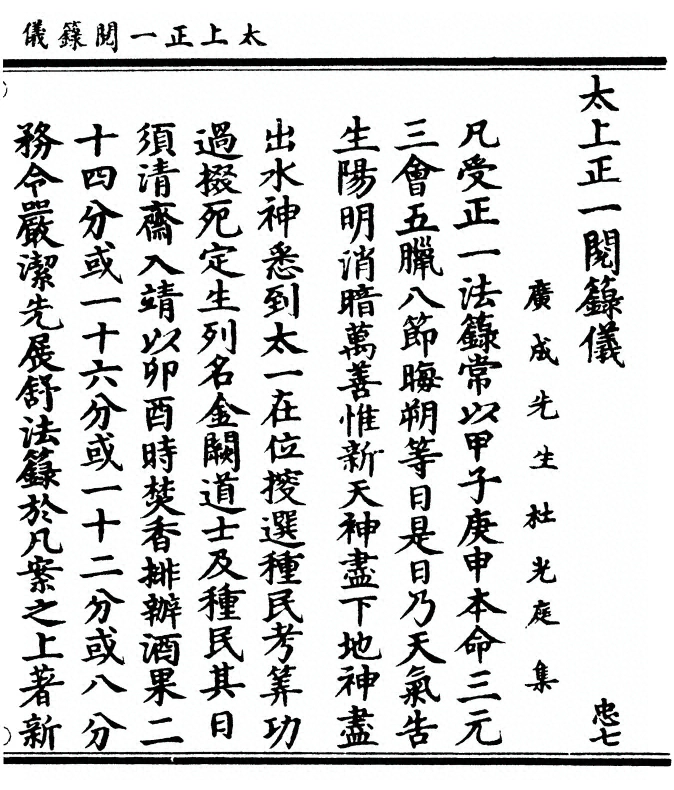 太上正一閱籙儀
太上正一閱籙儀
忠七
廣成先生杜光庭集
凡受正一法籙常以甲子庚申本命三元
三會五臘八節晦朔等日是日乃天氣告
生陽明消暗萬善惟新天神盡下地神盡
出水神悉到太一在位搜選種民考筭功
過掇死定生列名金闕道士及種民其日
須清齋入靖以卯酉時焚香排辦酒果二
十四分或一十六分或一十二分或八分
務令嚴潔先展舒法籙於几案之上著新